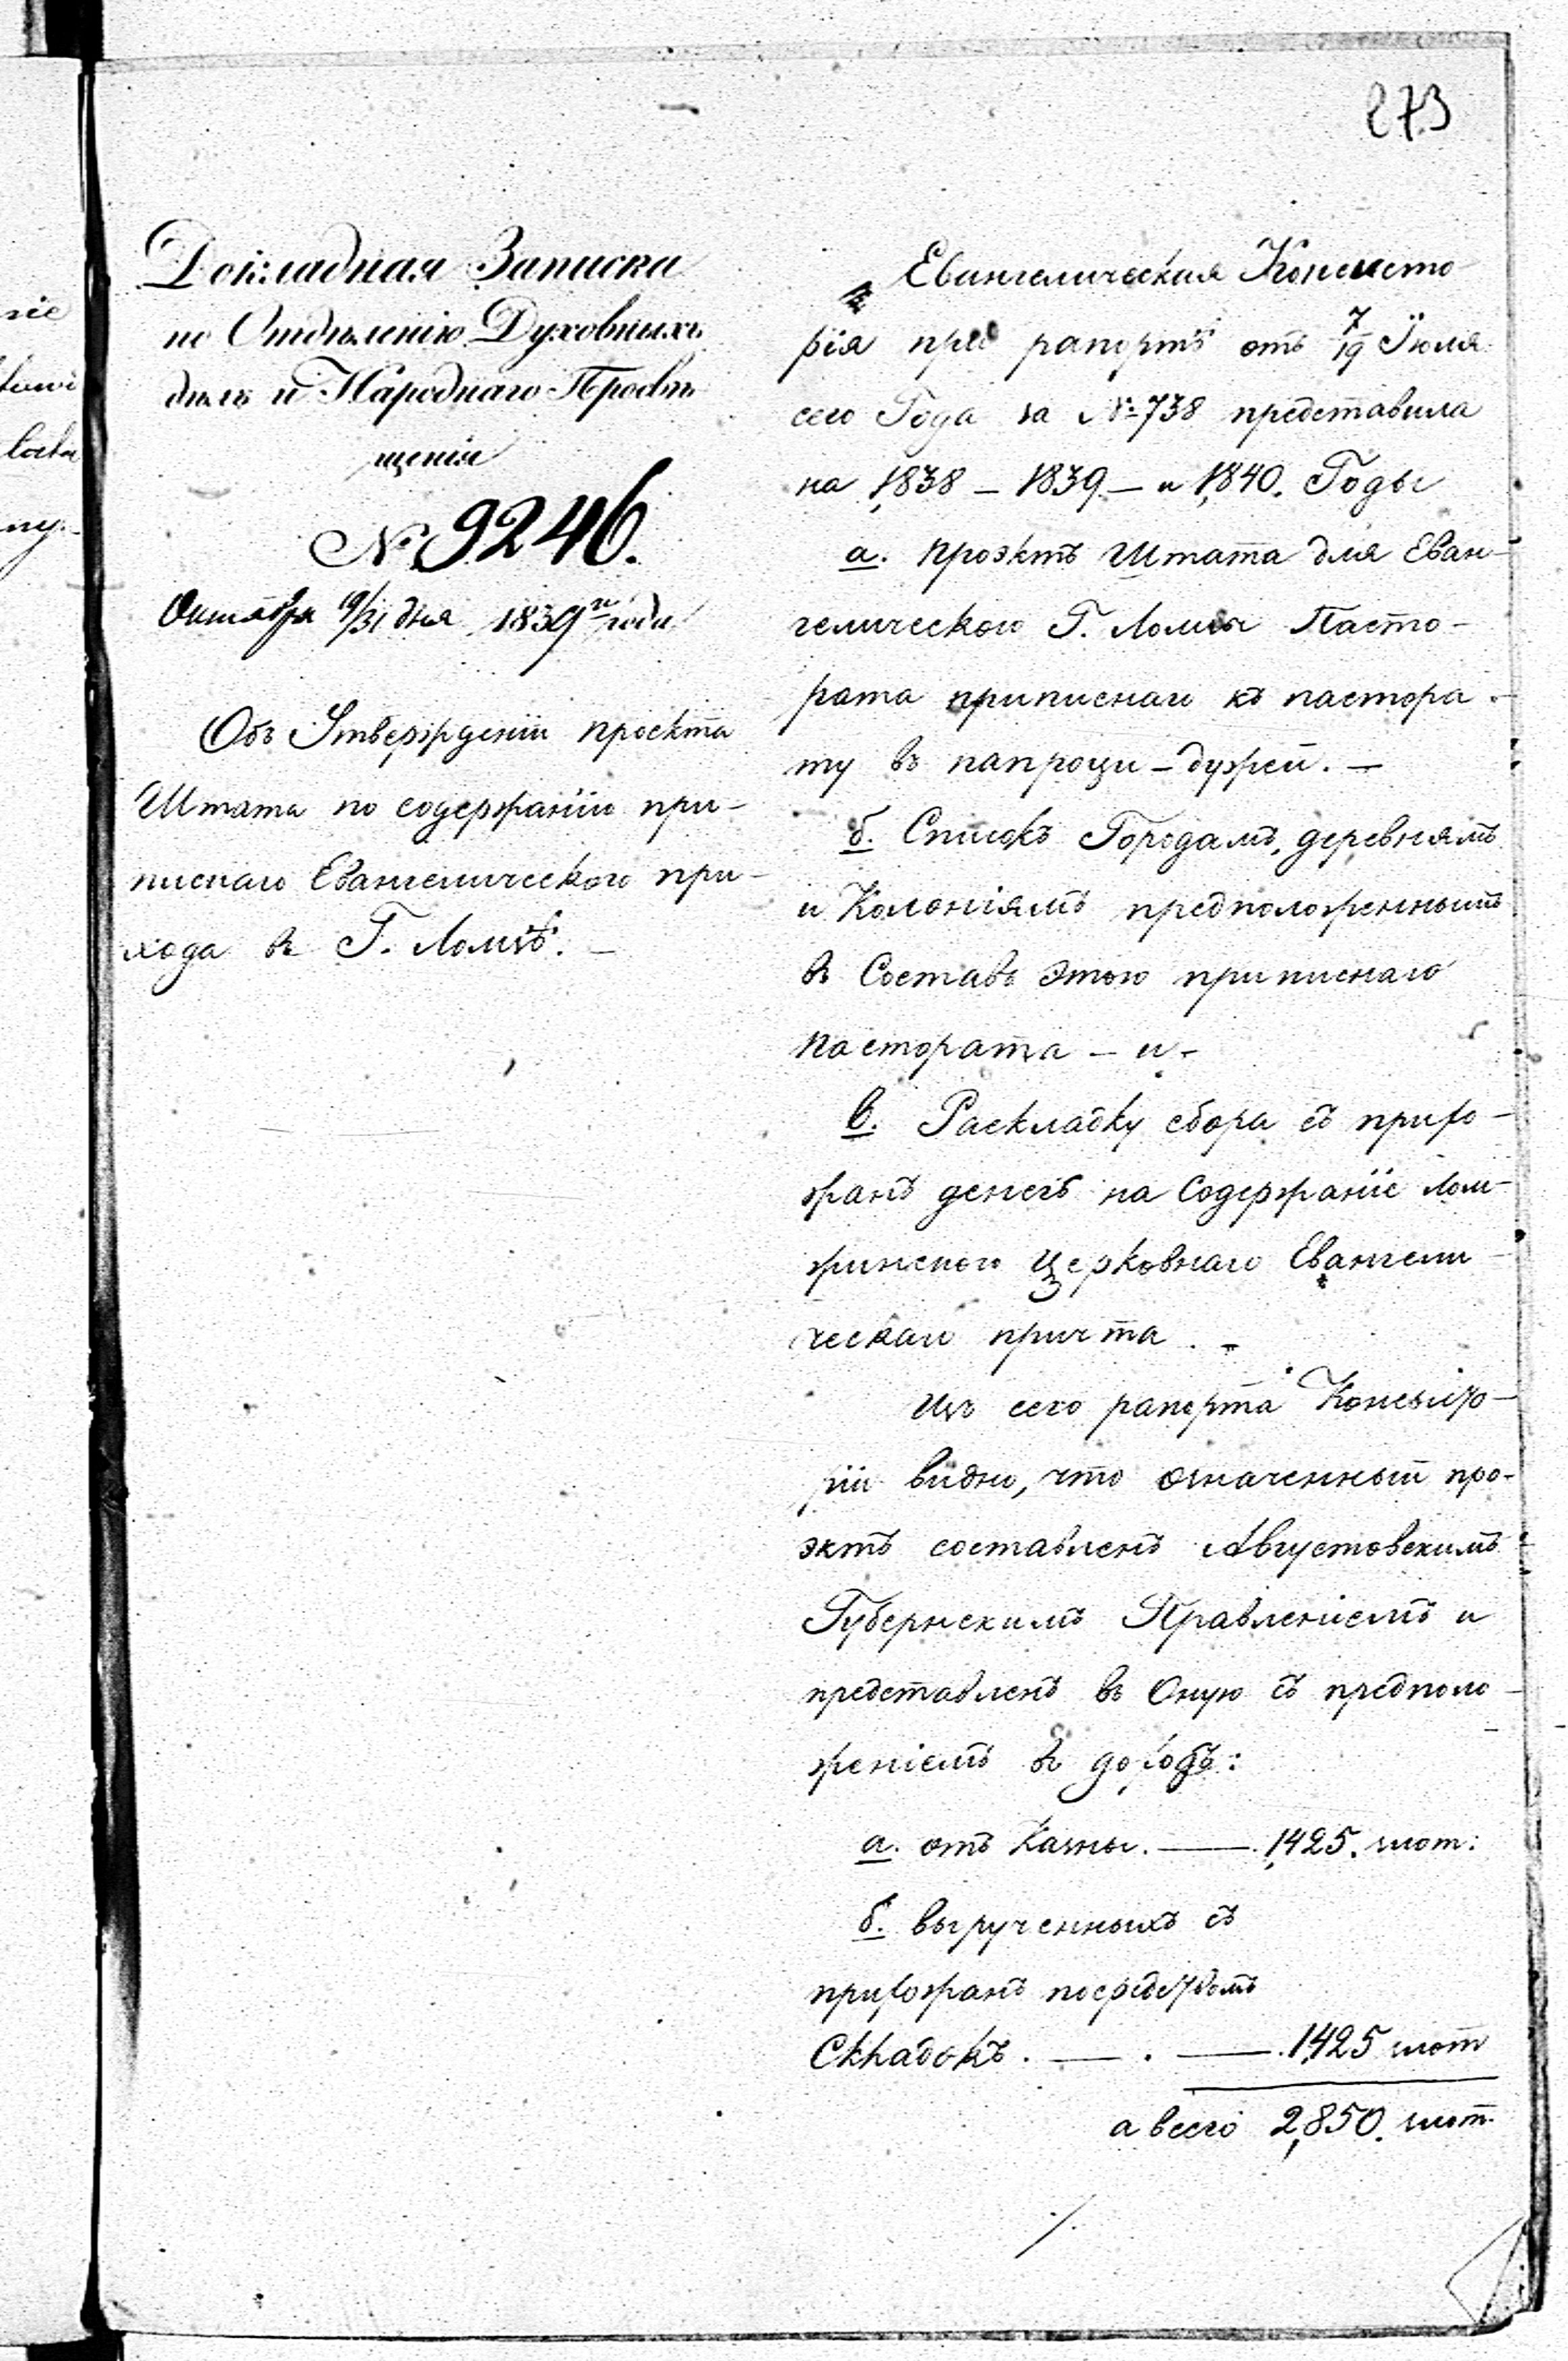 273
Докладная Записка
по Отдѣленію Духовныхъ
дѣлъ и Народнаго Просвѣ
щенія
№ 9246.
Октября 19/31 дня 1839го года
Объ Утвержденіи проекта
Штата по содержанію при-
писнаго Евангелическаго при-
хода въ Г. Ломзѣ. —
Евангелическая Консисто
рія при рапортѣ отъ 7/19 Іюля
сего Года за № 738 представила
на 1,838 – 1839 – и 1,840. Годы
а. проэктъ Штата для Еван-
гелическаго Г. Ломзы Пасто-
рата приписнаго къ пастора-
ту въ папроци-дужей. —
б. Списокъ Городамъ, деревнямъ
и Колоніямъ предположеннымъ
въ Составъ этого приписнаго
пастората – и –
в. Раскладку сбора съ прихо-
жанъ денегъ на Содержаніе Лом-
жинскаго Церковнаго Евангели-
ческаго причта. –
Изъ сего рапорта Консисто-
ріи видно, что означенный про-
эктъ составленъ Августовскимъ
Губернскимъ Правленіемъ и
представленъ въ Оную съ предполо-
женіемъ въ доходъ:
а. отъ Казны. — 1,425. злот:
б. вырученныхъ съ
прихожанъ посредствомъ
Складокъ. — . — 1,425 злот
а всего 2,850. злот.
./.